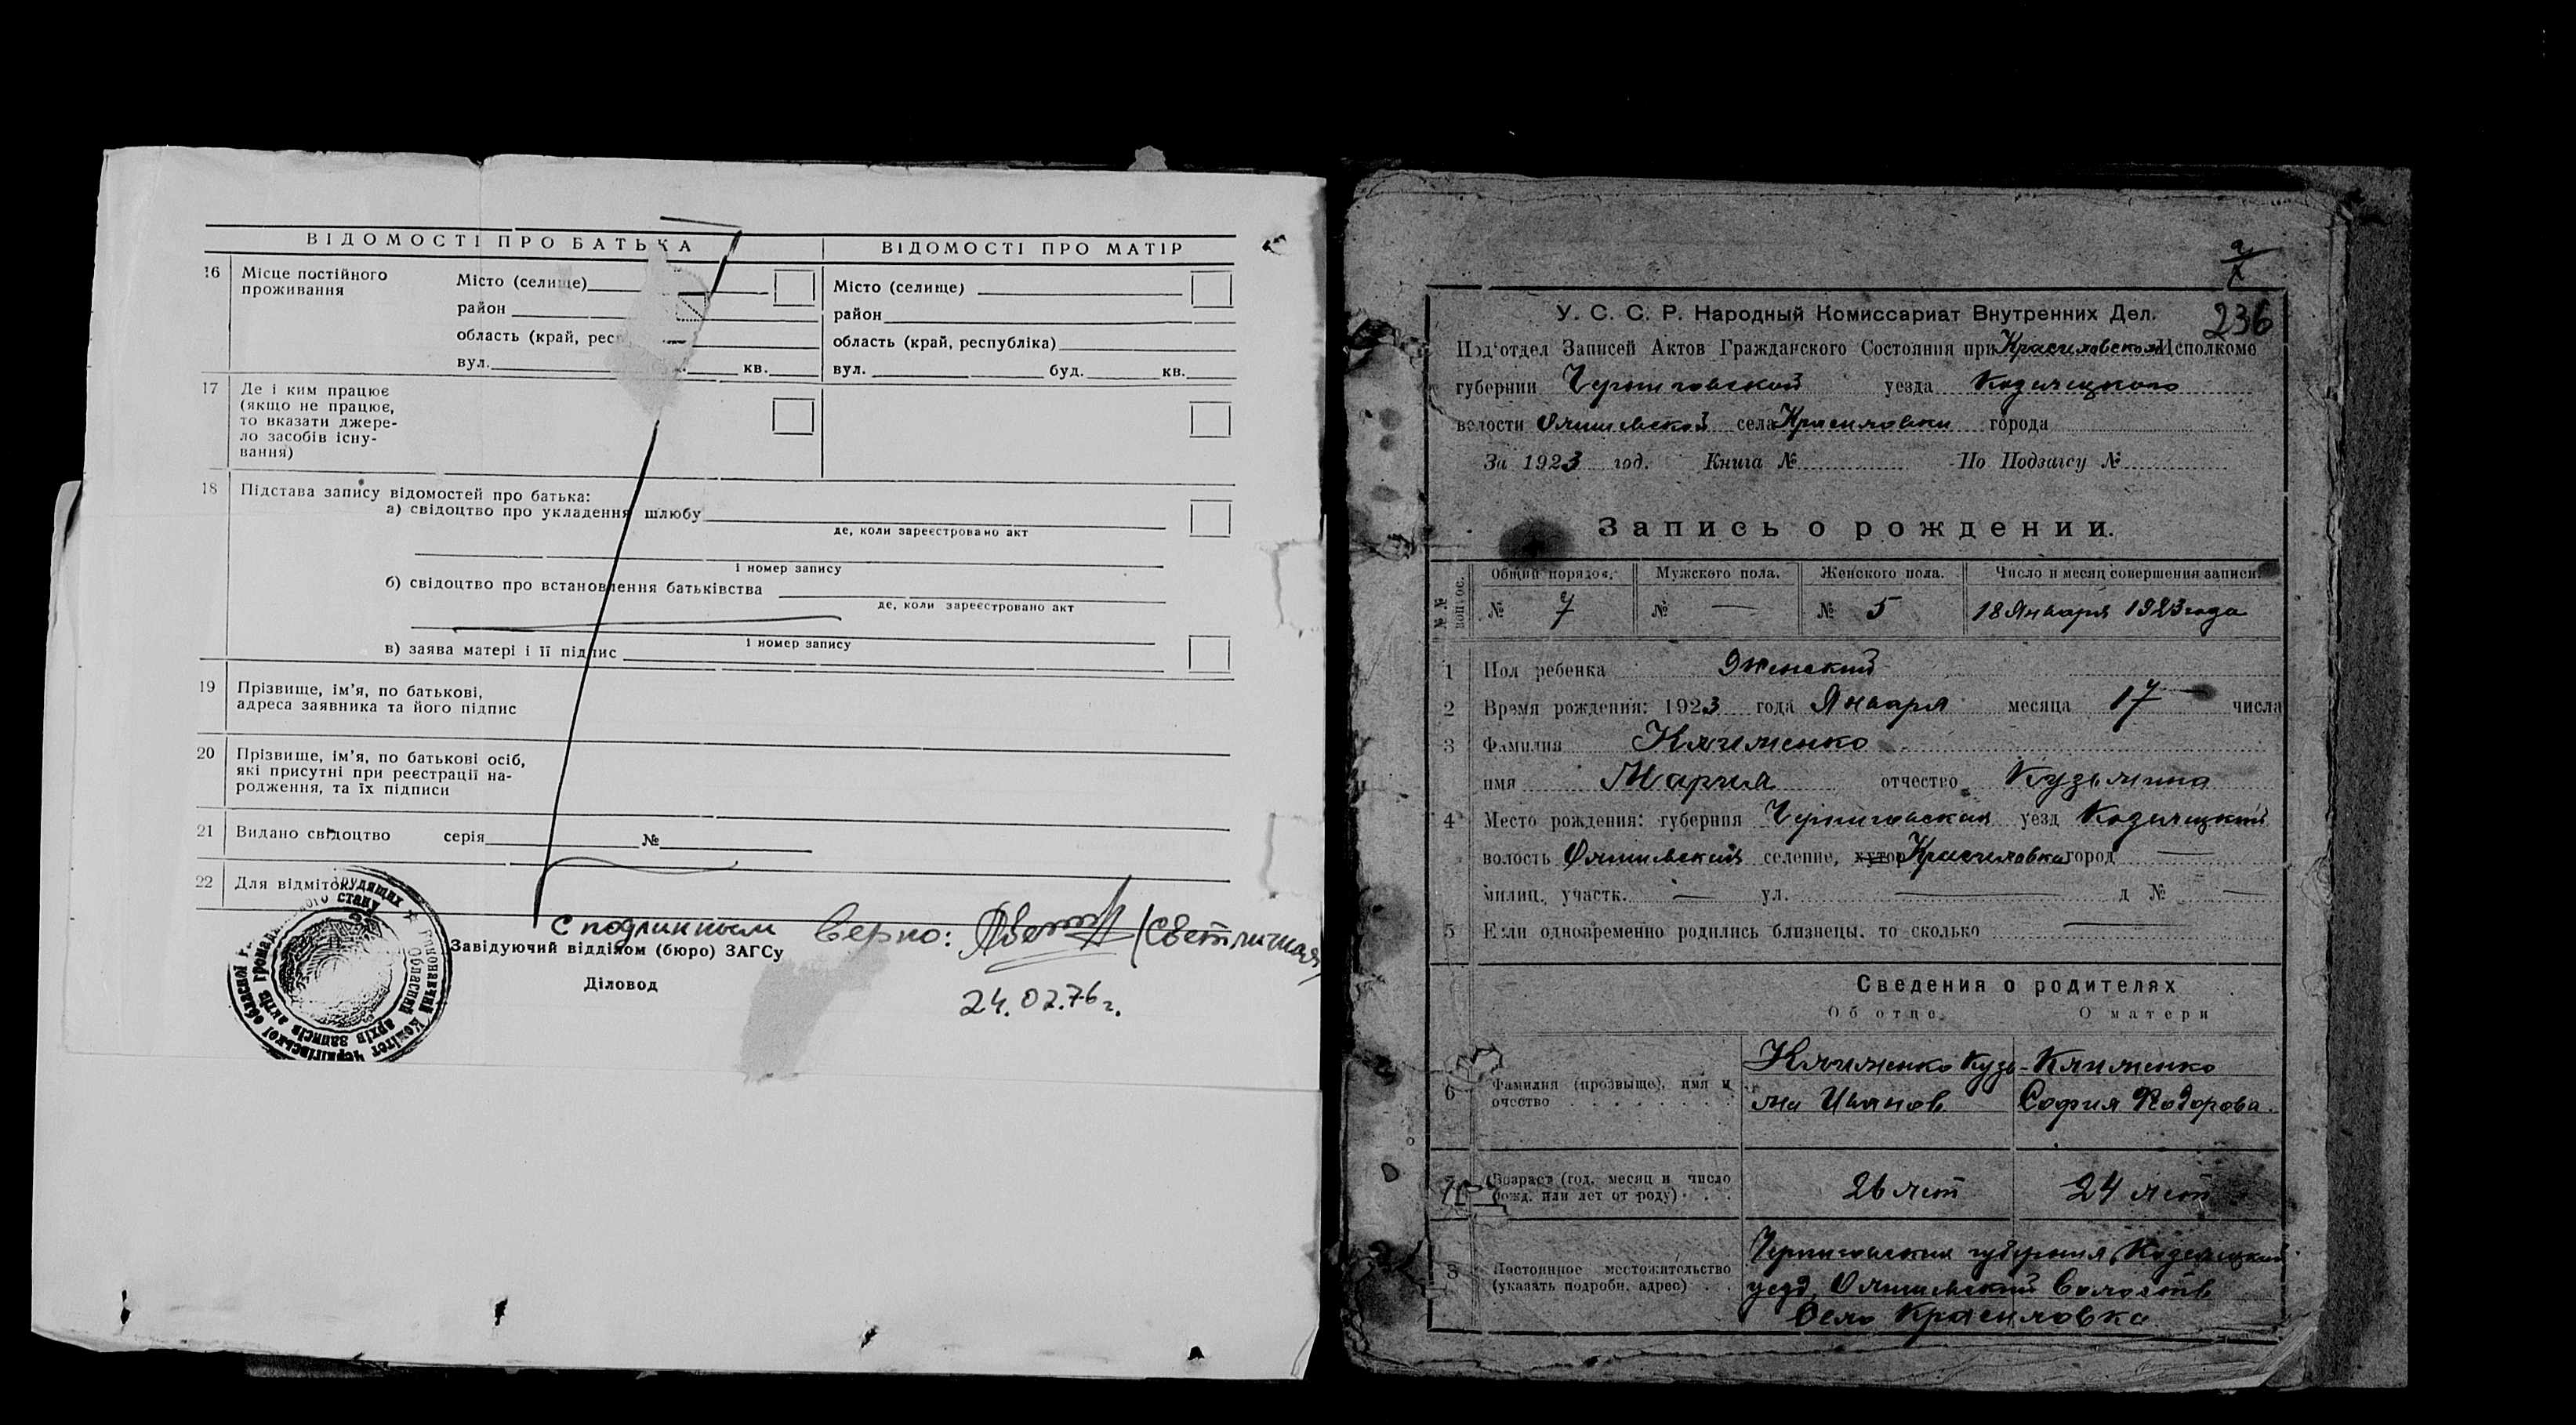 ВІДОМОСТІ ПРО БАТЬКА
ВІДОМОСТІ ПРО МАТІР
16 Місце постійного
проживання
Місто (селище)
район
область (край, рес
вул. кв.
Місто (селище)
район
область (край, республіка)
вул. буд. кв.
17 Де і ким працює
(якщо не працює,
то вказати джере-
ло засобів існу-
вання)
18 Підстава запису відомостей про батька:
а) свідоцтво про укладення шлюбу
де, коли зареєстровано акт
і номер запису
б) свідоцтво про встановлення батьківства
де, коли зареєстровано акт
і номер запису
в) заява матері і її підпис
19 Прізвище, ім'я, по батькові,
адреса заявника та його підпис
20 Прізвище, ім'я, по батькові осіб,
які присутні при реєстрації на-
родження, та їх підписи
21 Видано свідоцтво серія №
22 Для відміток
С подлинным верно: (Светличная)
Завідуючий відділом (бюро) ЗАГСу
Діловод
24.02.76 г.
236
У. С. С. Р. Народный Комиссариат Внутренних Дел.
Под'отдел Записей Актов Гражданского Состояния при Красиловском Исполкоме
губернии Черниговской уезда Козелецкого
волости Олишевской села Красиловки города
За 1923 год. Книга № По Подзагсу №
Запись о рождении.
Общий порядок. Мужского пола. Женского пола. Число и месяц совершения записи.
№ 7 № — № 5 18 Января 1923 года
1 Пол ребенка Женский
2 Время рождения: 1923 года Января месяца 17 числа
3 Фамилия Клименко
имя Мария отчество Кузьмина
4 Место рождения: губерния Черниговская уезд Козелецкий
волость Олишевская селение, хутор Красиловка город —
милиц. участк. — ул. — д № —
5 Если одновременно родились близнецы, то сколько —
Сведения о родителях
Об отце. О матери
6 Фамилия (прозвыще), имя и
очество
Клименко Кузь-
ма Иванов
Клименко
София Федорова
7 Возраст (год, месяц и число
рожд. или лет от роду)
26 лет
24 лет
8 Постоянное местожительство
(указать подробн. адрес)
Черниговская губерния, Козелецкий
уезд, Олишевский волость
село Красиловка